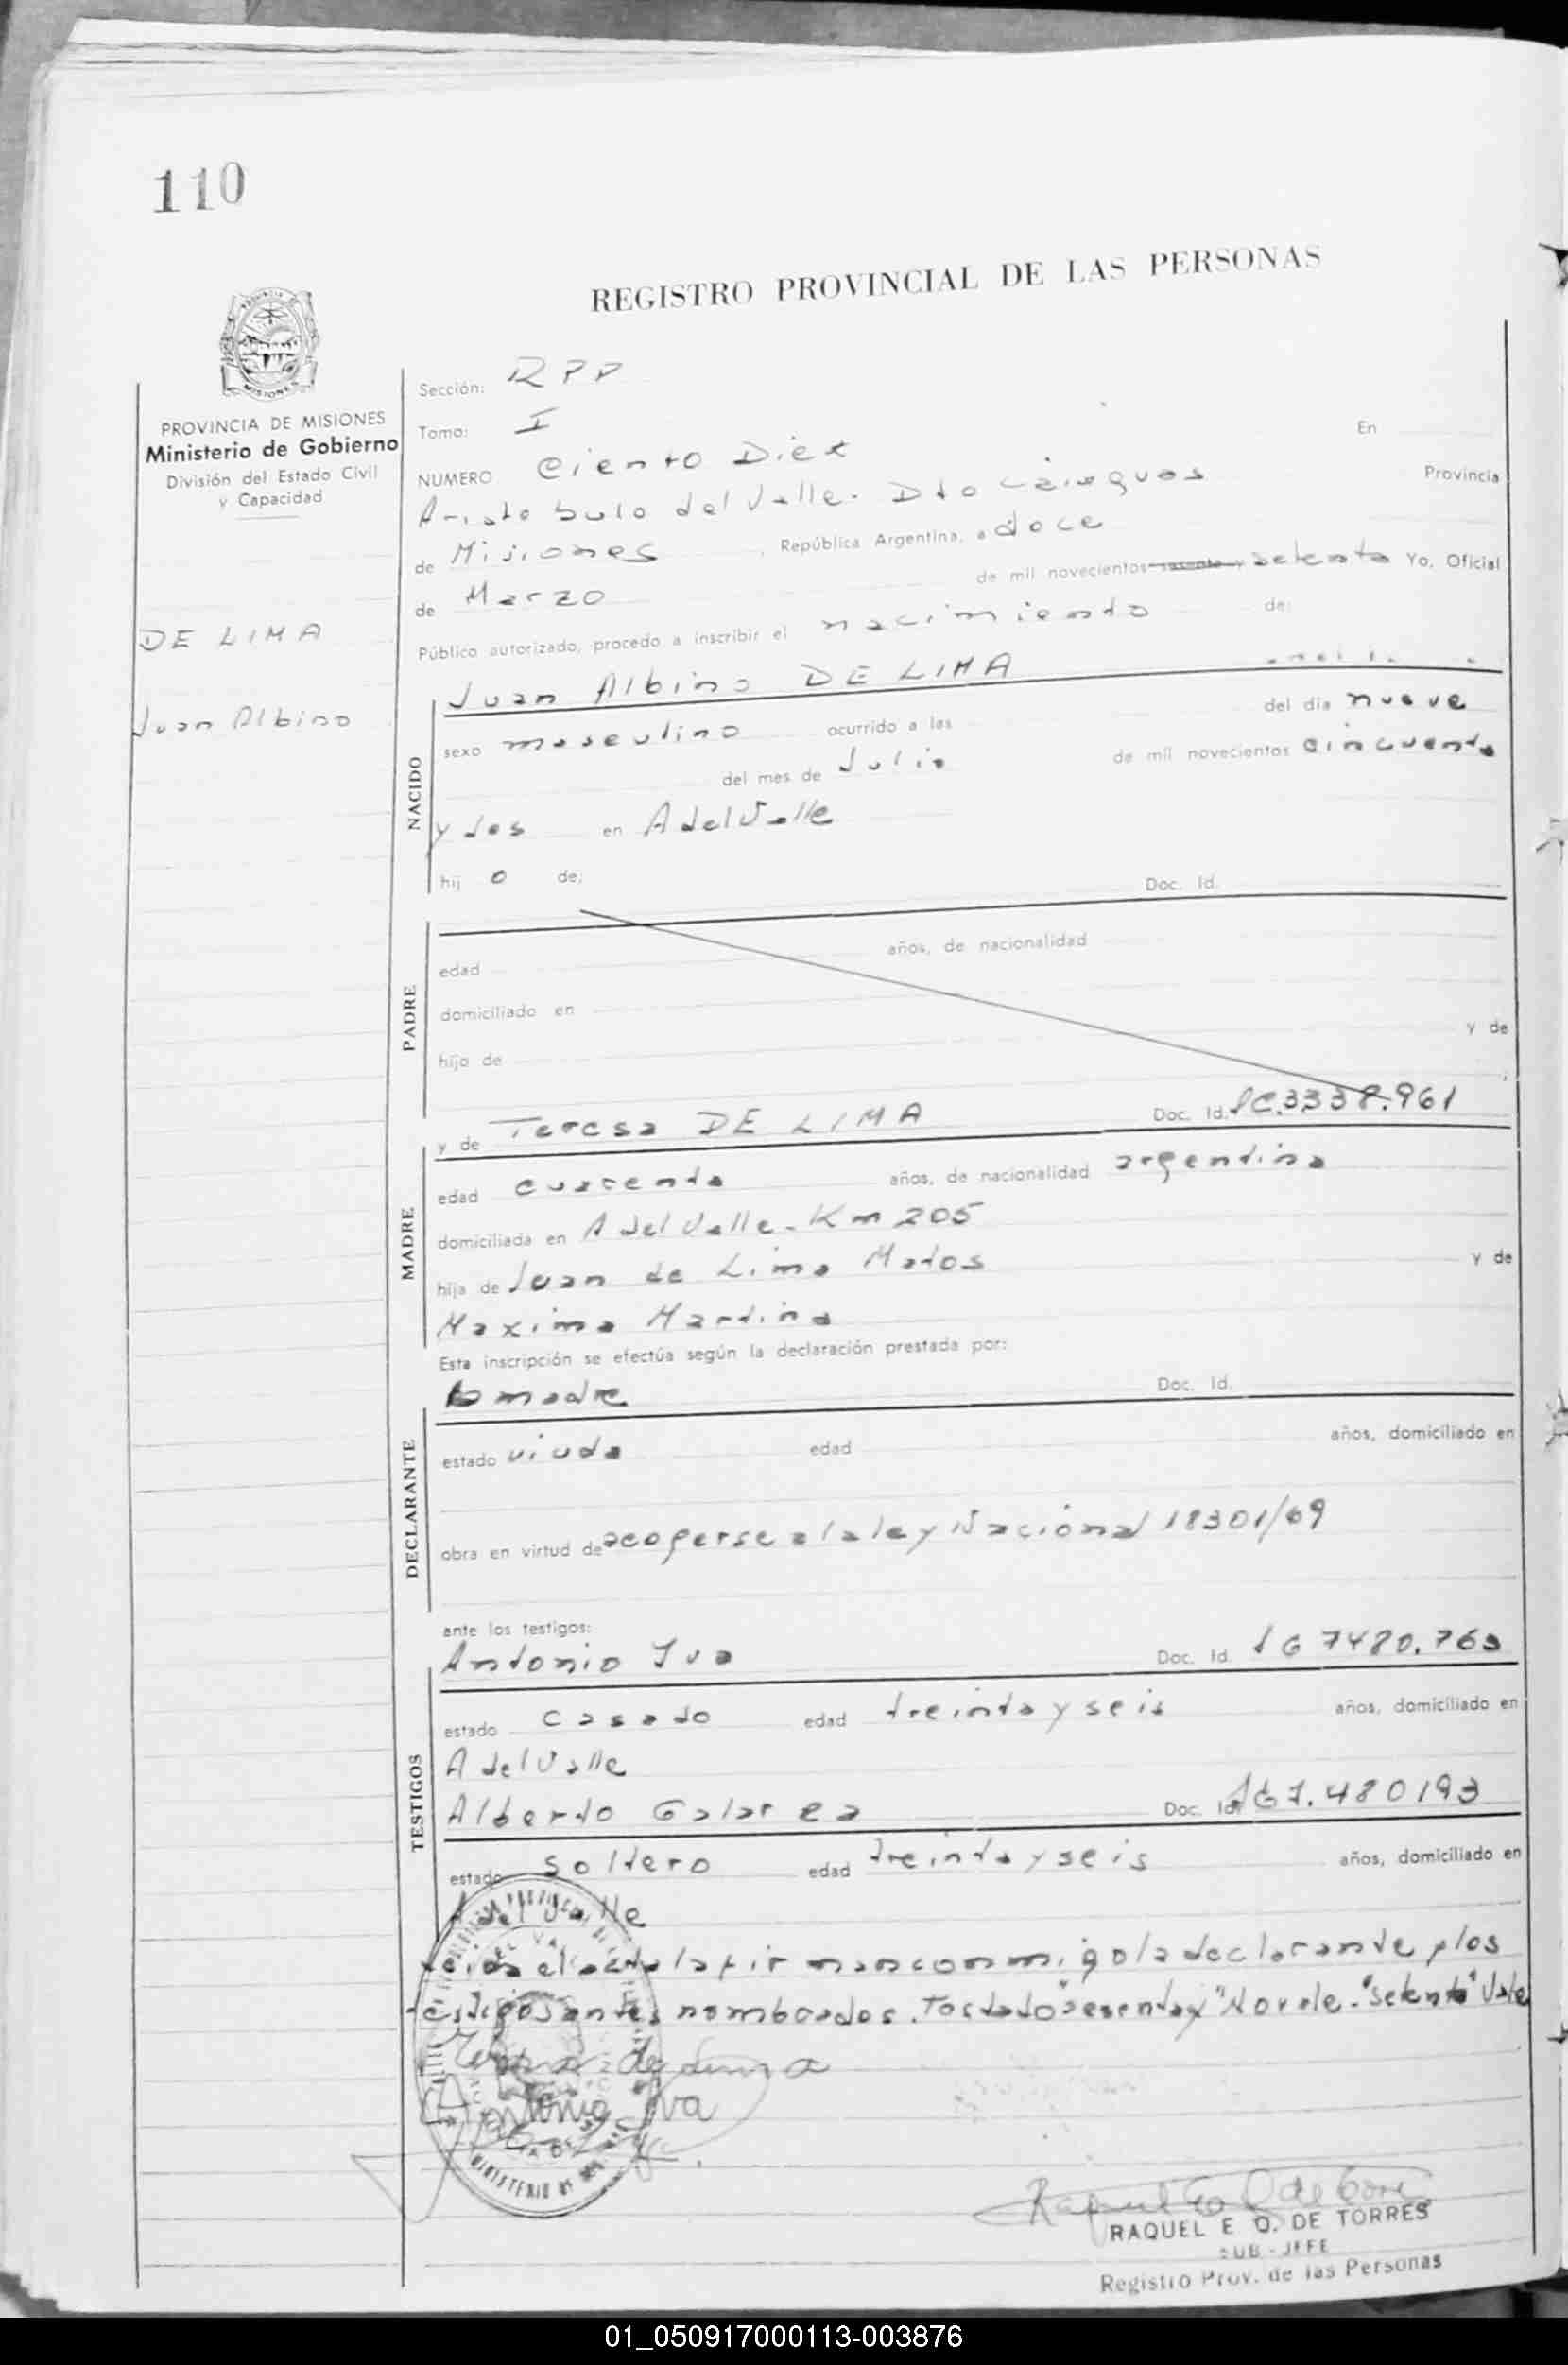 110
REGISTRO PROVINCIAL DE LAS PERSONAS
MISIONES
PROVINCIA DE MISIONES
Ministerio de Gobierno
División del Estado Civil
y Capacidad
DE LIMA
Juan Albino
Sección: RPP
Tomo: I En
NUMERO Ciento Diez
Aristobulo del Valle. Dto Cainguas Provincia
de Misiones, República Argentina, a doce
de Marzo de mil novecientos sesenta y setenta Yo, Oficial
Público autorizado, procedo a inscribir el nacimiento de:
Juan Albino DE LIMA
NACIDO
sexo masculino ocurrido a las del día nueve
del mes de Julio de mil novecientos cincuenta
y dos en A del Valle
hij o de: Doc. Id.
PADRE
edad años, de nacionalidad
domiciliado en
hijo de y de
y de Teresa DE LIMA Doc. Id. LC.3.338.961
MADRE
edad cuarenta años, de nacionalidad argentina
domiciliada en A del Valle - Km 205
hija de Juan de Lima Matos y de
Maxima Martina
Esta inscripción se efectúa según la declaración prestada por:
la madre Doc. Id.
DECLARANTE
estado viuda edad años, domiciliado en
obra en virtud de acogerse a la ley Nacional 18301/69
ante los testigos:
Antonio Iva Doc. Id.
TESTIGOS
estado casado edad treinta y seis años, domiciliado en
A del Valle
Alberto Galarza Doc. Id. 7.480193
estado soltero edad treinta y seis años, domiciliado en
A del Valle
Leida el acta la firman conmigo la declarante y los
testigos antes nombrados. Testado "sesenta y" No vale - "setenta" Vale
Teresa de Lima
Antonio Iva
MINISTERIO DE
RAQUEL E. O. DE TORRES
SUB - JEFE
Registro Prov. de las Personas
01_050917000113-003876